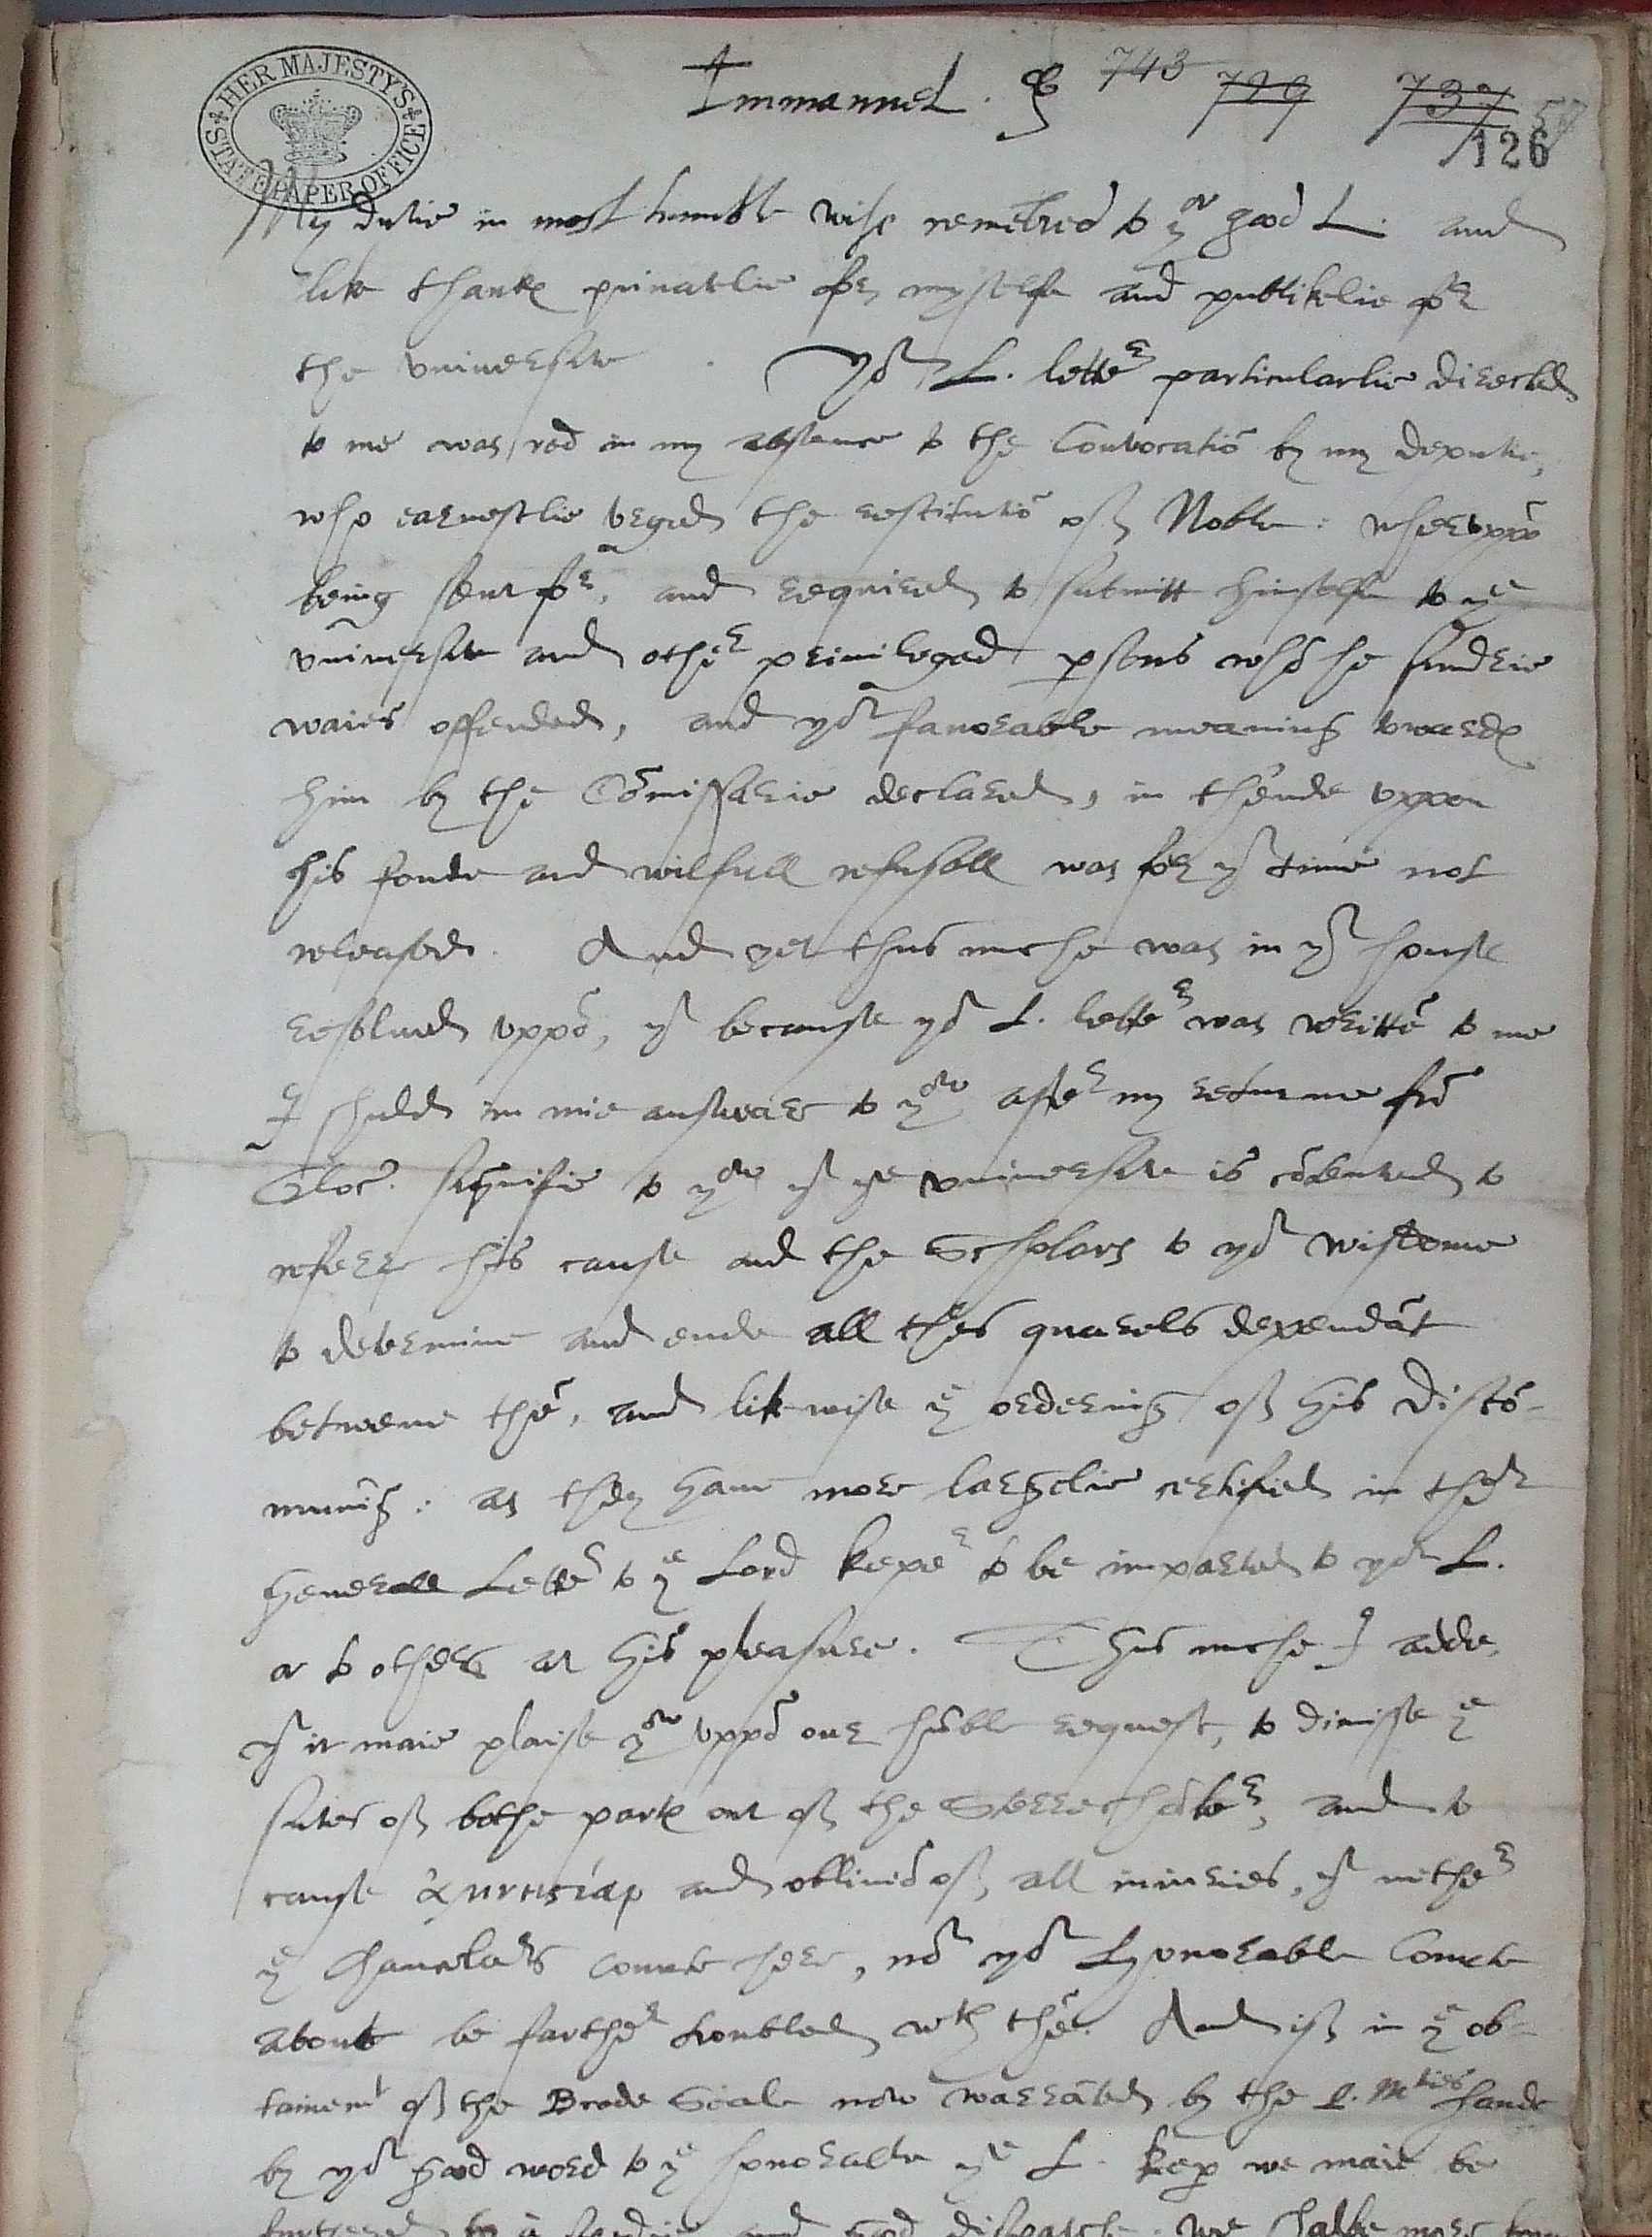 HER MAJESTY'S STATE PAPER OFFICE
Immanuel. 743 729 737
126
My dutie in most humble wise remēbred to yor good L. and
like thankes privatelie for myselfe and publikelie for
the universitie. Yor L. letter particularlie directed
to me was red in my absence to the Convocatiō by my deputie,
who earnestlie urged the restitutiō of Noble: wheruppō
being sent for, and required to submitt himselfe to ye
universitie and other privileged psons whō he sundrie
waies offended, and yor favorable meaning towardes
him by the Cōmissarie declared, in thende uppon
his fonde and wilfull refusall was for yt time not
released. And yet thus muche was in yt house
resolued uppō, yt because yor L. letter was writtē to me
I shuld in mie answeare to yow after my returne frō
Gloc. signifie to yow yt ye universitie is cōtented to
referr his cause and the Scholars to yor wisdome
to determine and ende all thes quarels dependāt
betweene thē, and likwise ye ordering of his discō-
muning: as they have more largelie certified in their
generall Letter to ye Lord keper to be imparted to yor L.
or to others at his pleasure. Thus muche I adde,
yt it maie plaise yow uppō our hūble request, to dimisse ye
sutes of bothe partes out of the Sterrechāber, and to
cause ἀμνηστίαν and obliviō of all iniuries, yt nether
ye Chancelars courte here, nor yor Honorable Courte
aboute be farther troubled wth thē. And if in ye ob-
tainemt of the Brode Seale now warrāted by the Q. Maties hande
by yor good word to ye honorable ye L. keper we maie be
and good dispatche. we shalbe more